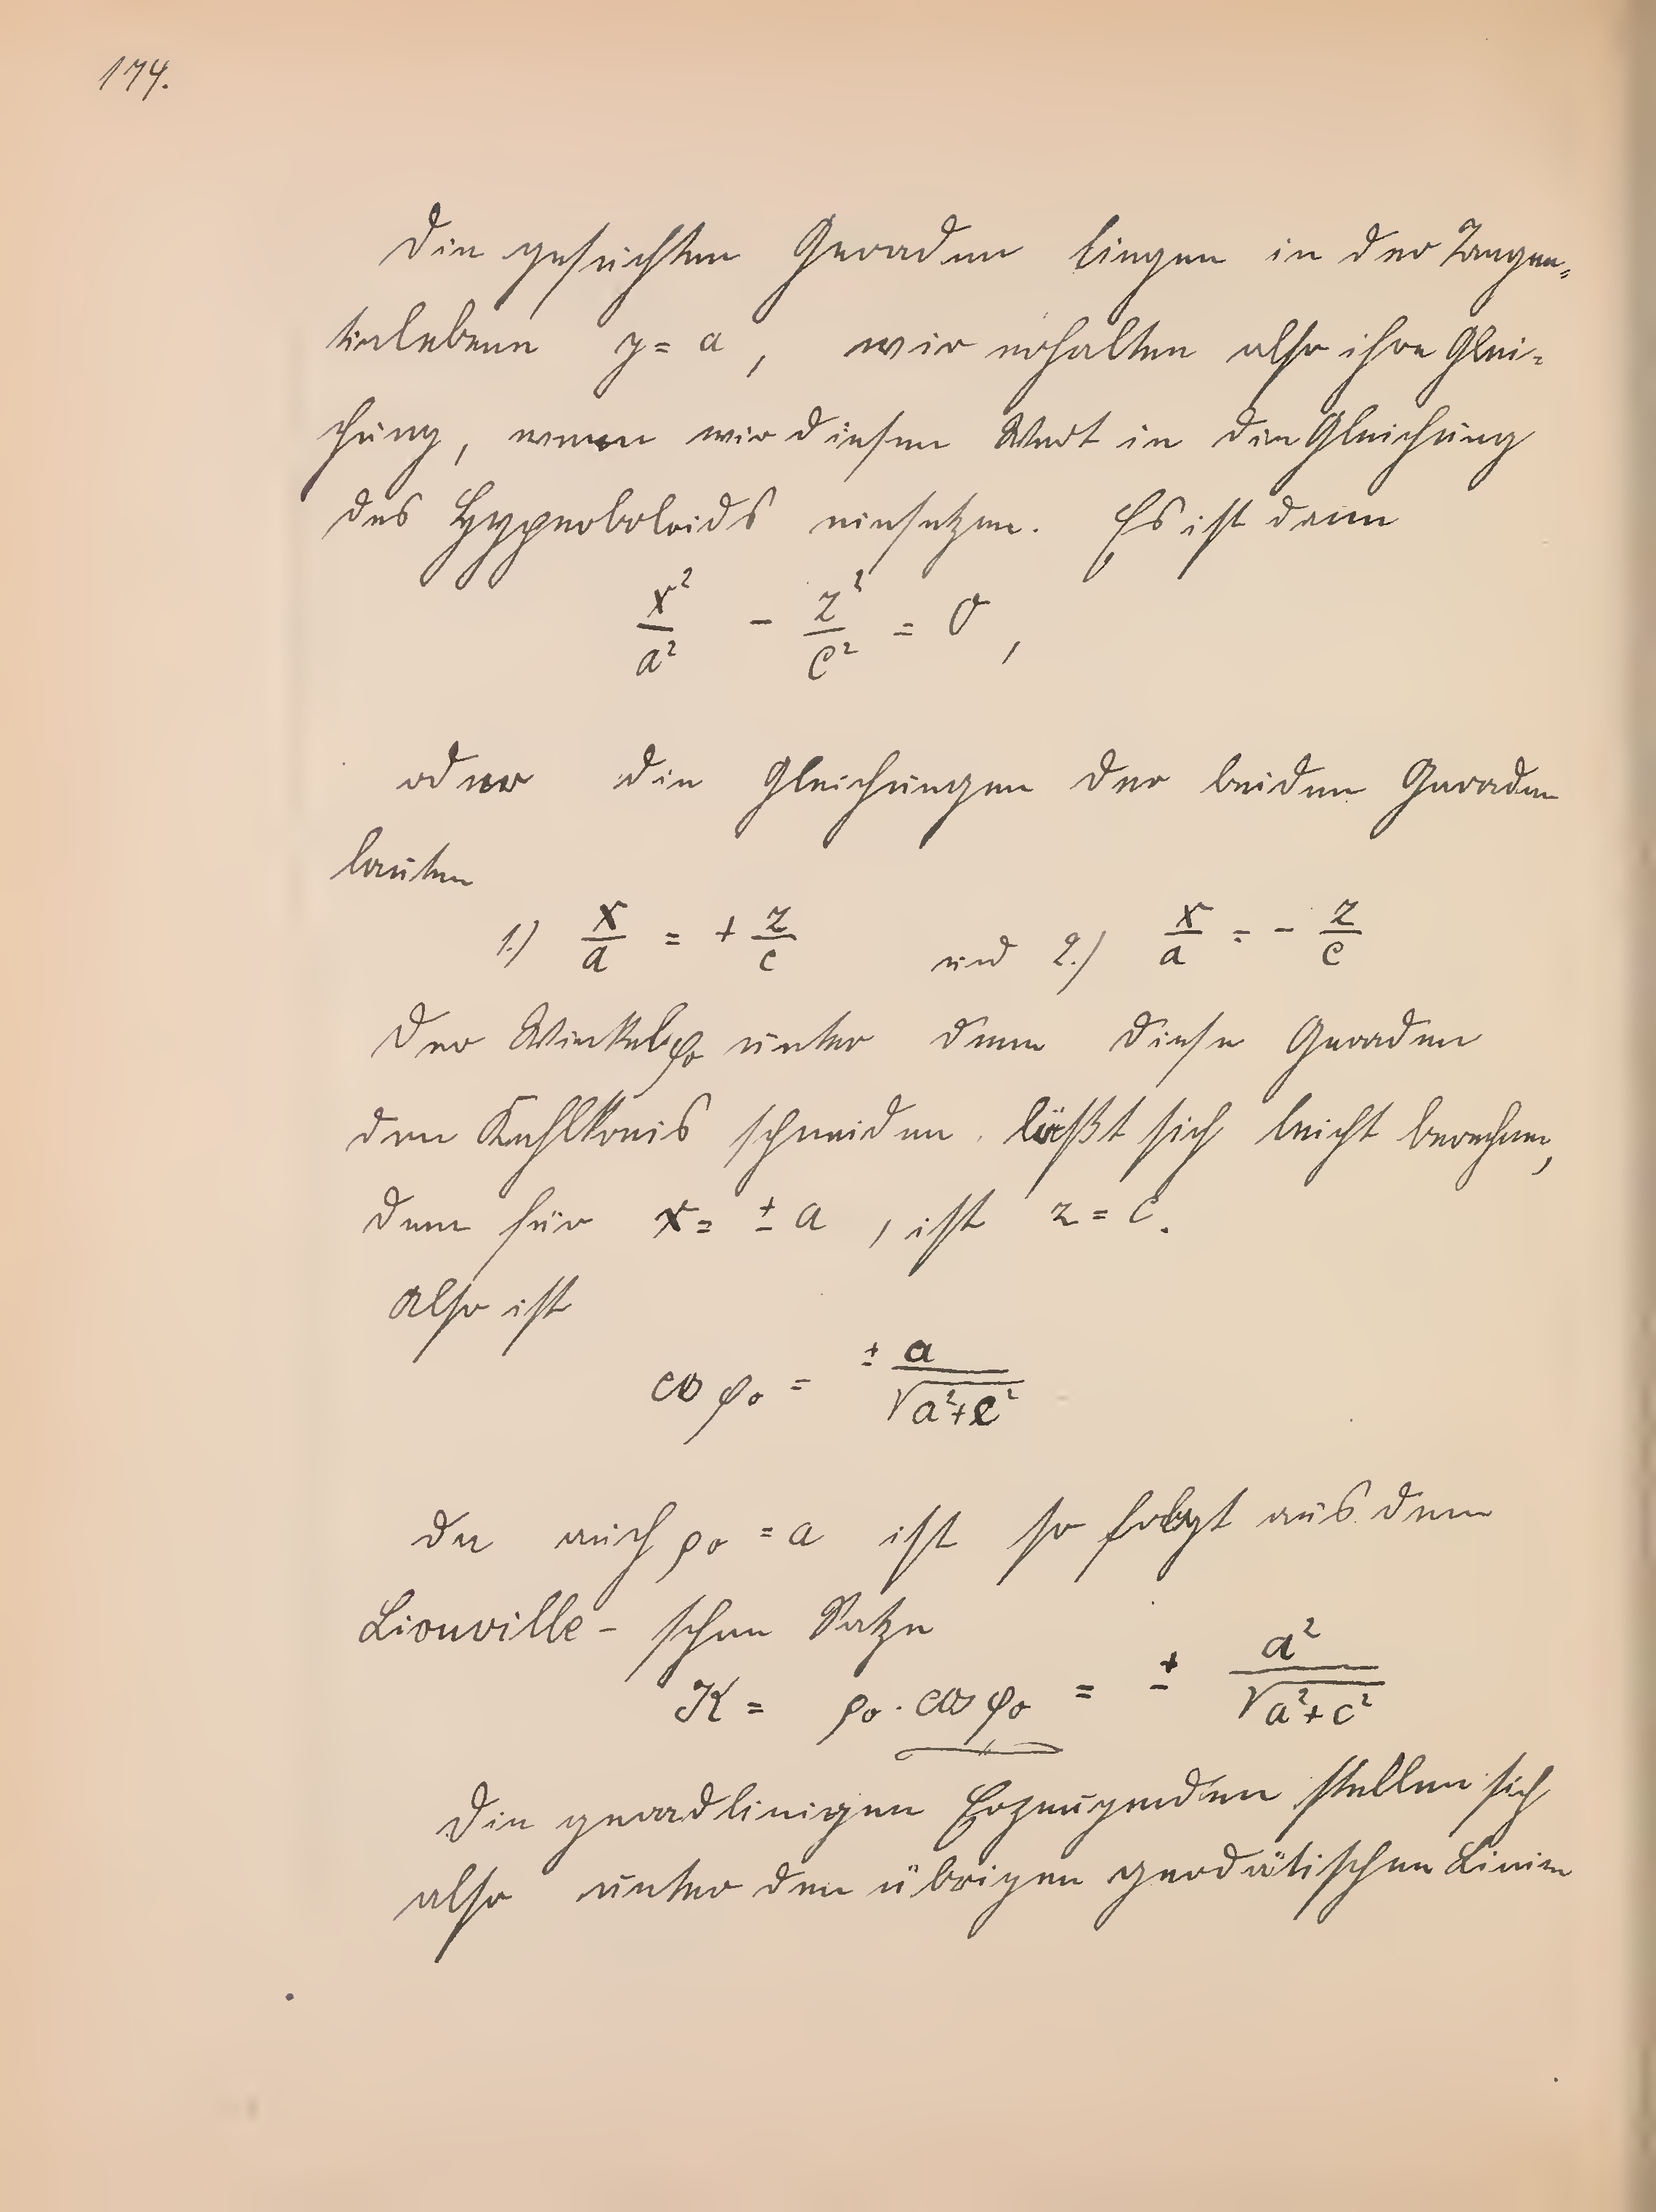 174.
Die gesuchten Geraden liegen in der Tangen-
tialebene y = a, wir erhalten also ihre Glei-
chung, wenn wir diesen Wert in die Gleichung
des Hyperboloids einsetzen. Es ist dann
x²/a² - z²/c² = 0,
oder die Gleichungen der beiden Geraden
lauten
1.) x/a = + z/c und 2.) x/a = - z/c
Der Winkel φ₀ unter dem diese Geraden
den Kehlkreis schneiden läßt sich leicht berechnen,
denn für x = ± a, ist z = c.
Also ist
cos φ₀ = ± a/√(a²+c²)
da auch ρ₀ = a ist so folgt aus dem
Liouville-schen Satze
K = ρ₀ · cos φ₀ = ± a²/√(a²+c²)
Die geradlinigen Erzeugenden stellen sich
also unter den übrigen geodätischen Linien